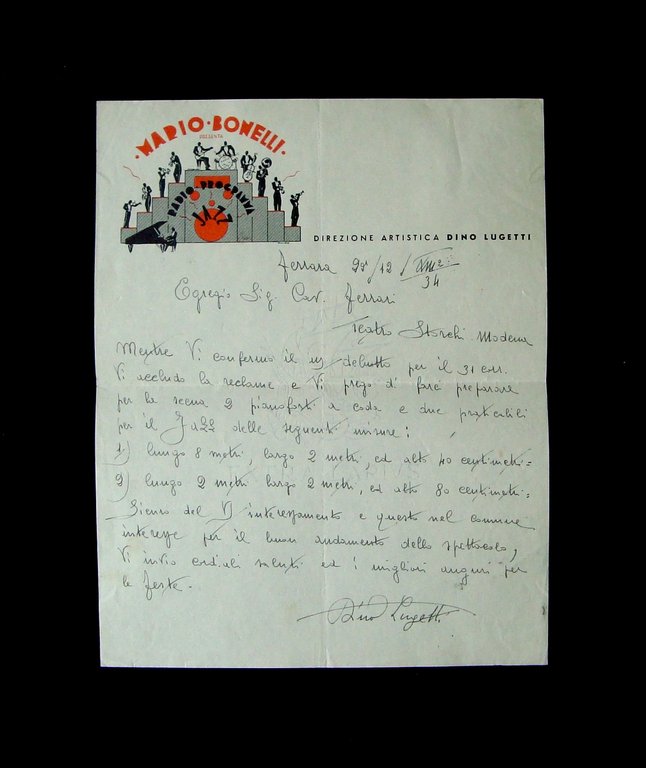 ·MARIO·BONELLI·
PRESENTA
RADIO-PROGRAMMA
JAZZ
DIREZIONE ARTISTICA DINO LUGETTI
Ferrara 25/12 / XIII
34
Egregio Sig. Cav. Ferrari
Teatro Storchi Modena
Mentre Vi confermo il ns debutto per il 31 corr.
Vi accludo la reclame e Vi prego di fare preparare
per la scena 2 pianoforti a coda e due praticabili
per il Jazz delle seguenti misure:
1) lungo 8 metri, largo 2 metri, ed alto 40 centimetri=
2) lungo 2 metri largo 2 metri, ed alto 80 centimetri=
Sicuro del V interessamento e questo nel comune
interesse per il buon andamento dello spettacolo,
Vi invio cordiali saluti ed i migliori auguri per
le feste.
Dino Lugetti